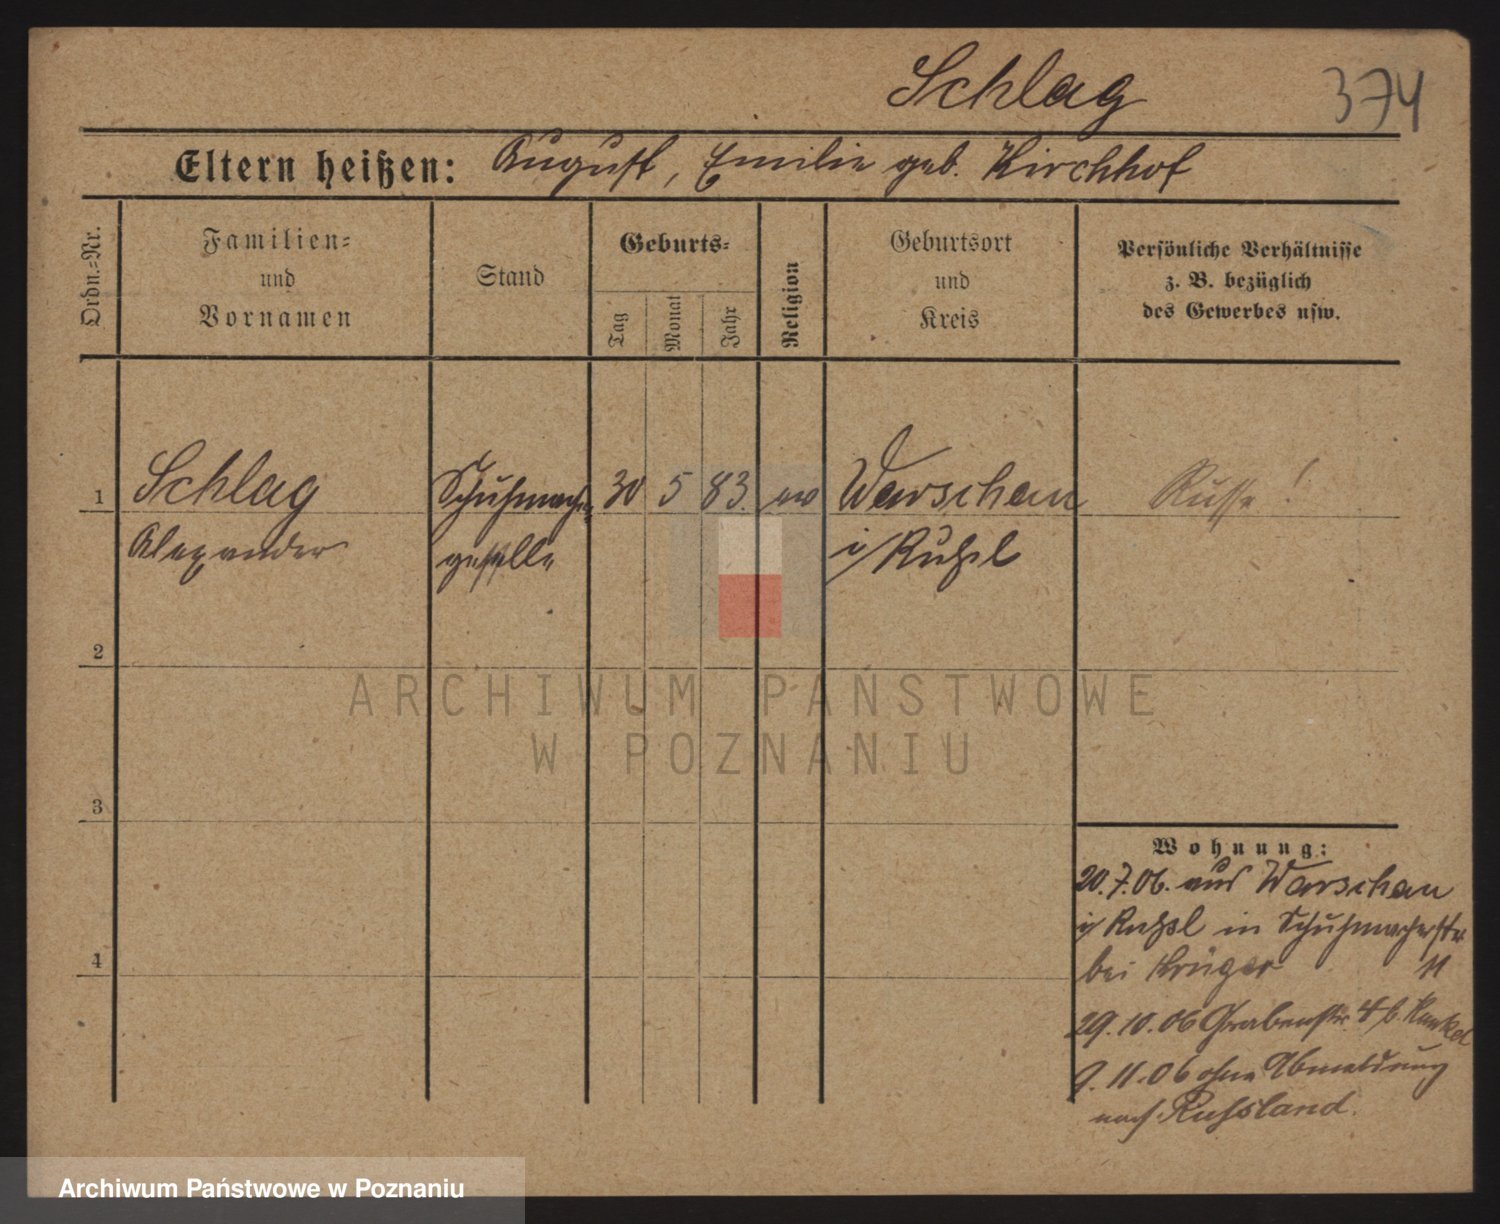 Schlag 374
Eltern heißen: August, Emilie geb. Kirchhof
Ordn.-Nr.
Familien-
und
Vornamen
Stand
Geburts-
Tag
Monat
Jahr
Religion
Geburtsort
und
Kreis
Persönliche Verhältnisse
z. B. bezüglich
des Gewerbes usw.
1 Schlag Schuhmacher- 30 5 83. ev Warschau Russe!
Alexander geselle i/Rußl
2
3
4
Wohnung:
20.7.06. aus Warschau
i/Rußl in Schuhmacherstr
bei Krüger 11
29.10.06 Grabenstr 4 b.
9.11.06 ohne Abmeldung
nach Russland.
ARCHIWUM PAŃSTWOWE
W POZNANIU
Archiwum Państwowe w Poznaniu